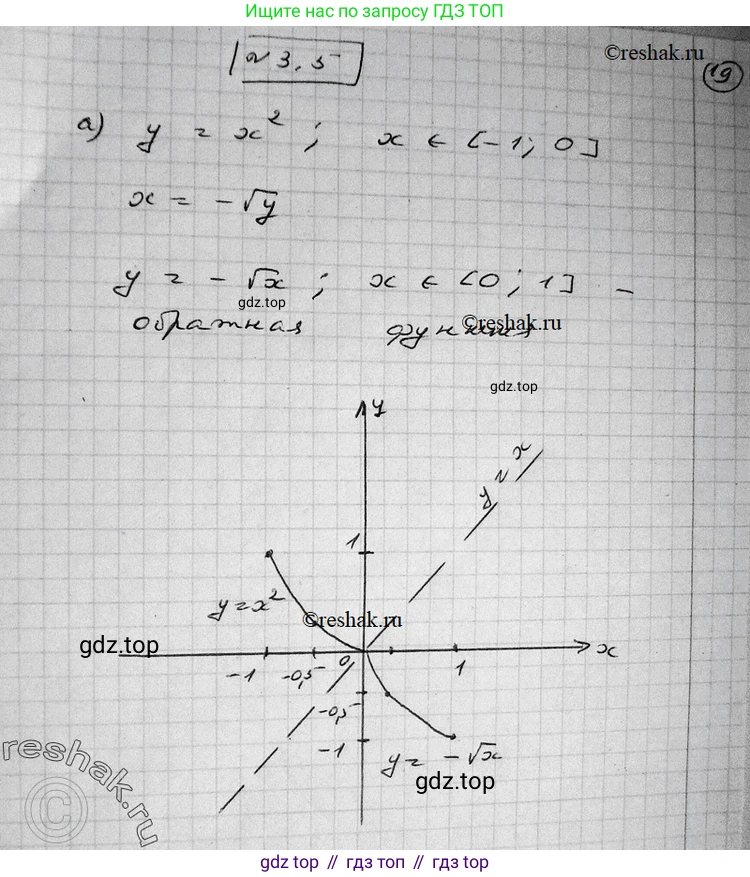 Ищите нас по запросу ГДЗ ТОП
©reshak.ru
№ 3.5
19
а) y = x² ; x ∈ [-1; 0]
x = -√y
y = -√x ; x ∈ [0; 1] -
gdz.top
обратная функция
©reshak.ru
gdz.top
y
y = x
1
y = x²
©reshak.ru
gdz.top
-1 -0,5 0 1 x
-0,5
-1
y = -√x
gdz.top
reshak.ru
©
gdz top // гдз топ // gdz top